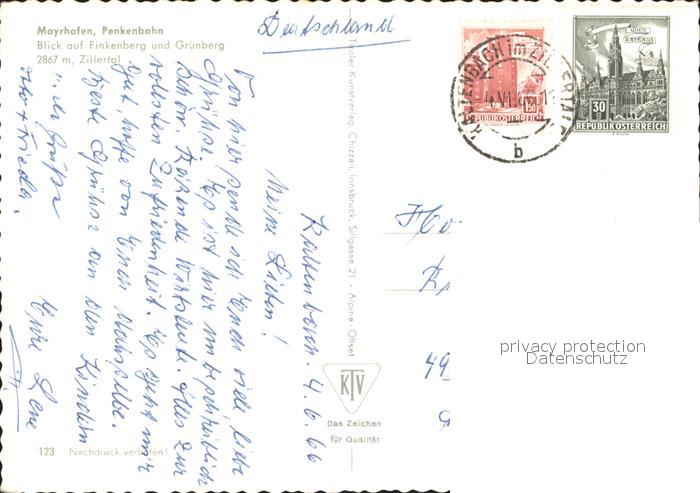 Mayrhofen, Penkenbahn
Blick auf Finkenberg und Grünberg
2867 m, Zillertal
Deutschland
KALTENBACH im ZILLERTAL
b
1.50
REPUBLIK ÖSTERREICH
WIEN
RATHAUS
30 g
REPUBLIK ÖSTERREICH
Tiroler Kunstverlag Chizzali, Innsbruck, Sillgasse 21 - Alpina-Offset
Kaltenbach. 4.6.66
Meine Lieben!
Von hier sende ich Euch viele, liebe
Grüsse. Es ist hier unbeschreiblich
schön. Reizende Wirtsleute. Alles zur
vollsten Zufriedenheit. Es geht mir
gut, hoffe von Euch dasselbe.
Beste Grüsse an den Kindern
Grüsse
Otto + Frieda.
Eure Lene
KTV
Das Zeichen
für Qualität
123 Nachdruck verboten!
49
privacy protection
Datenschutz